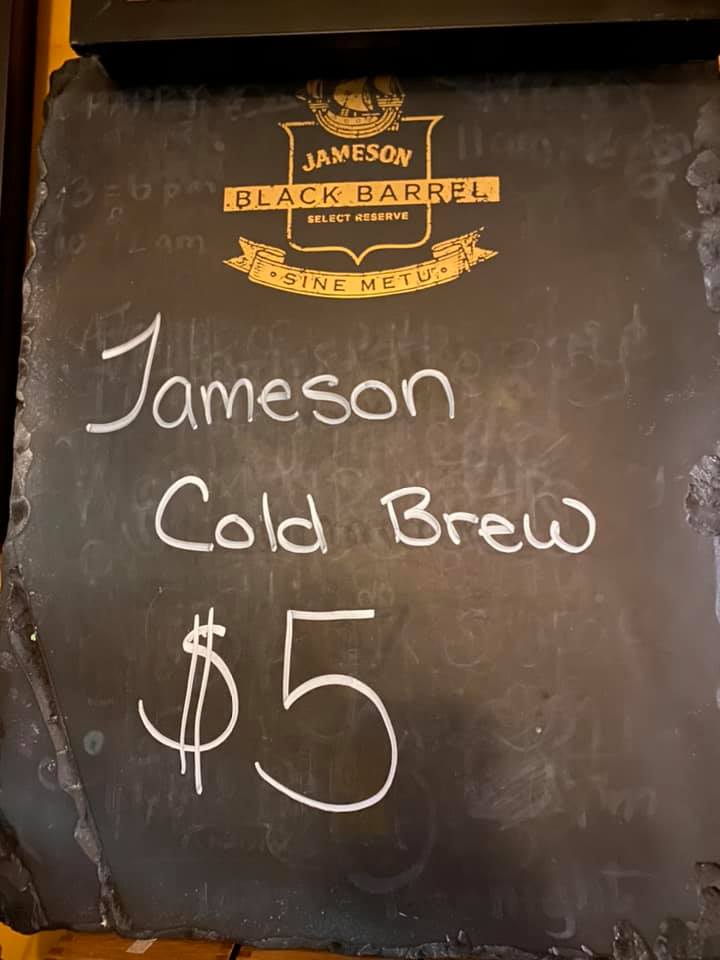 JAMESON
BLACK BARREL
SELECT RESERVE
SINE METU
Jameson
Cold Brew
$5